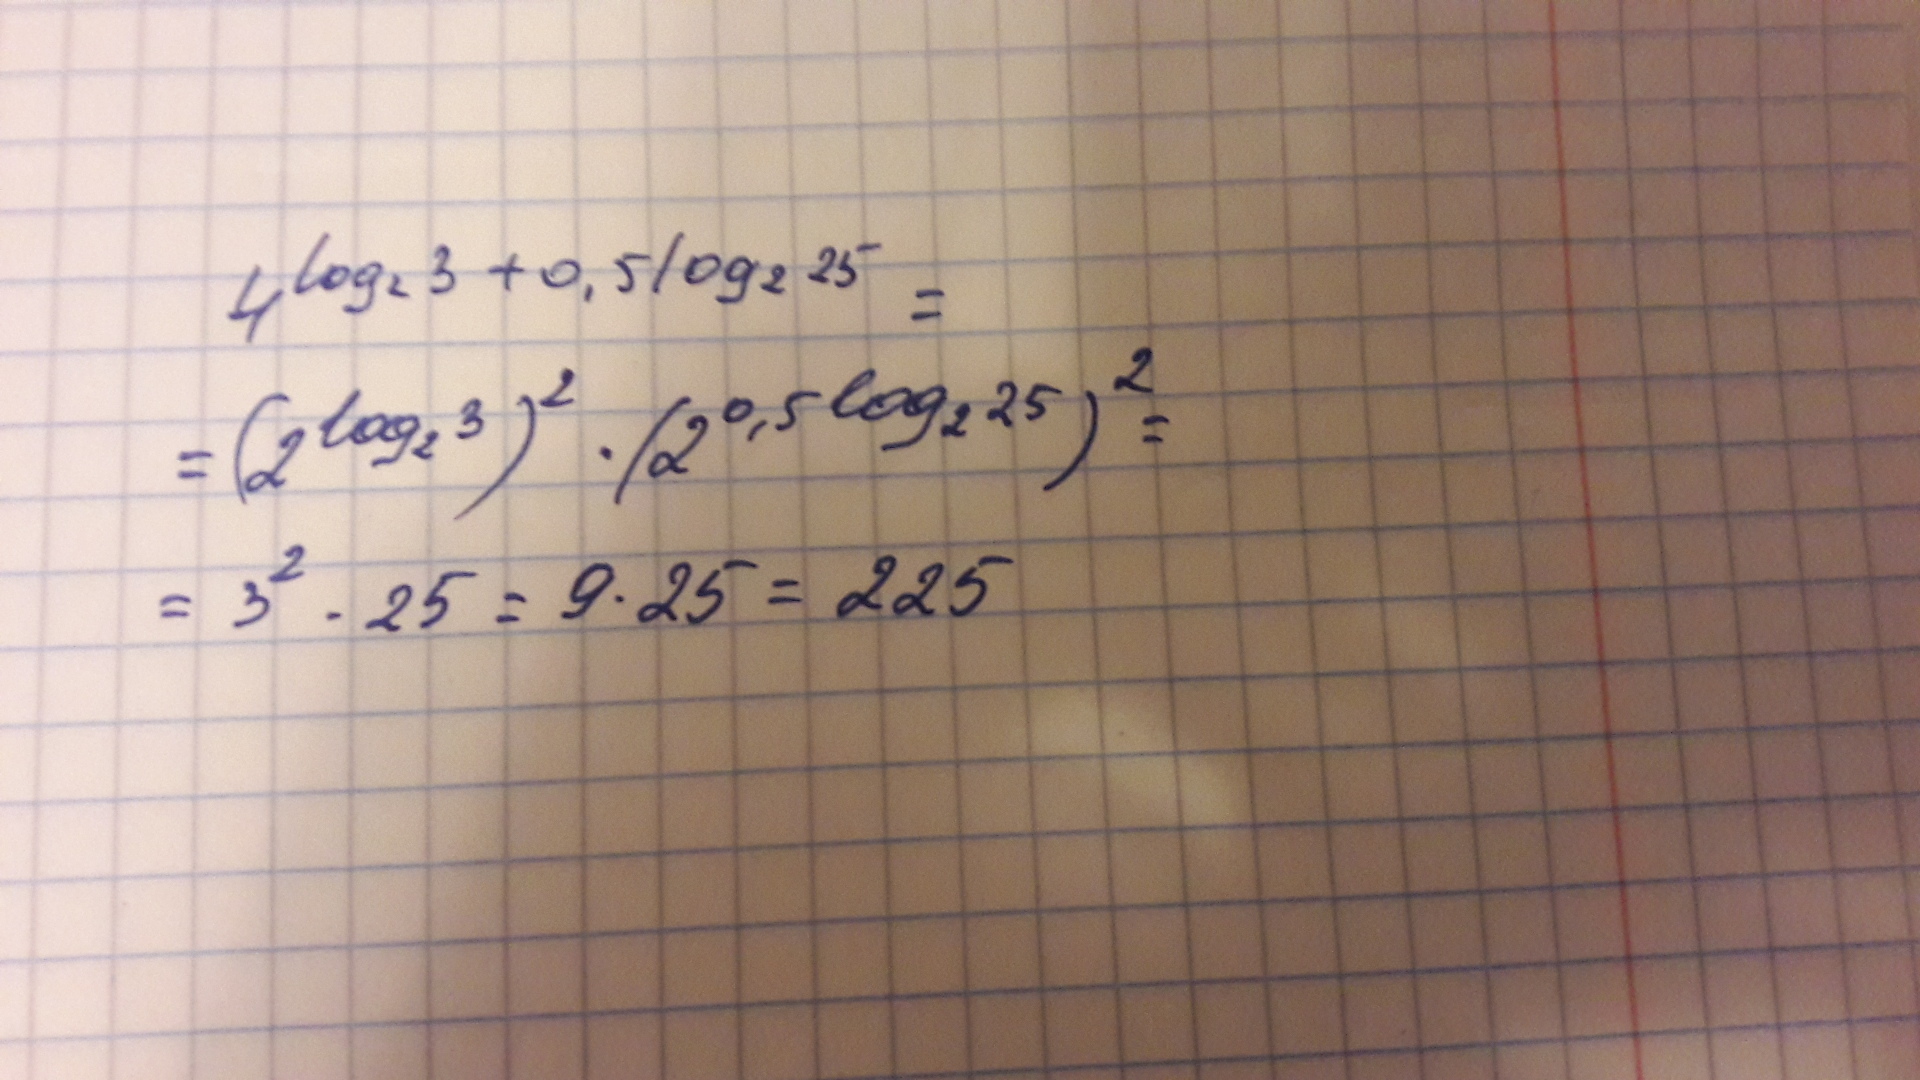 4^{log₂ 3 + 0,5 log₂ 25} =
= (2^{log₂ 3})² · (2^{0,5 log₂ 25})² =
= 3² · 25 = 9 · 25 = 225